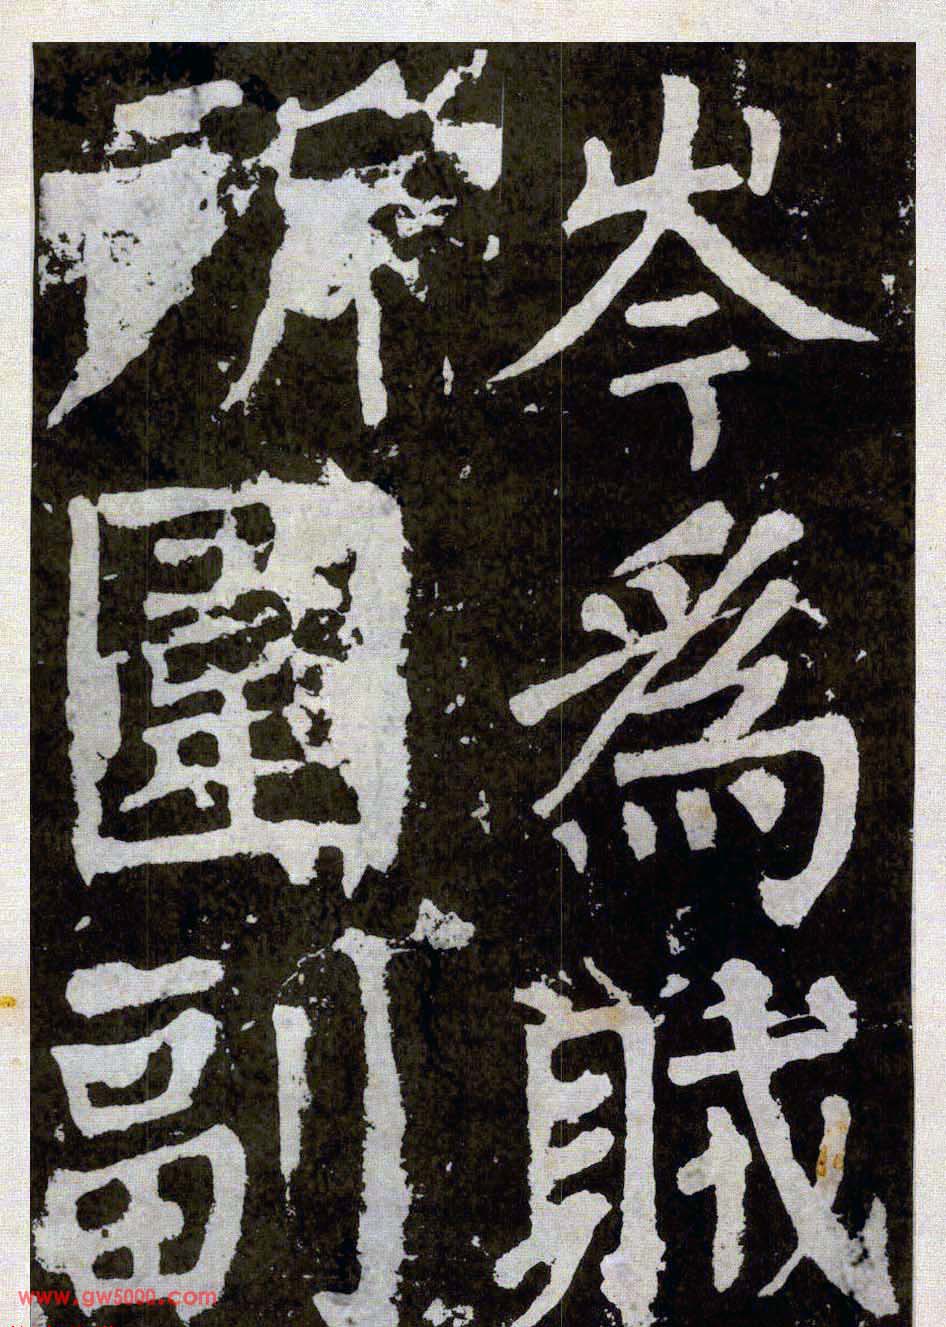 岑為賊
所圍副
www.gw5000.com